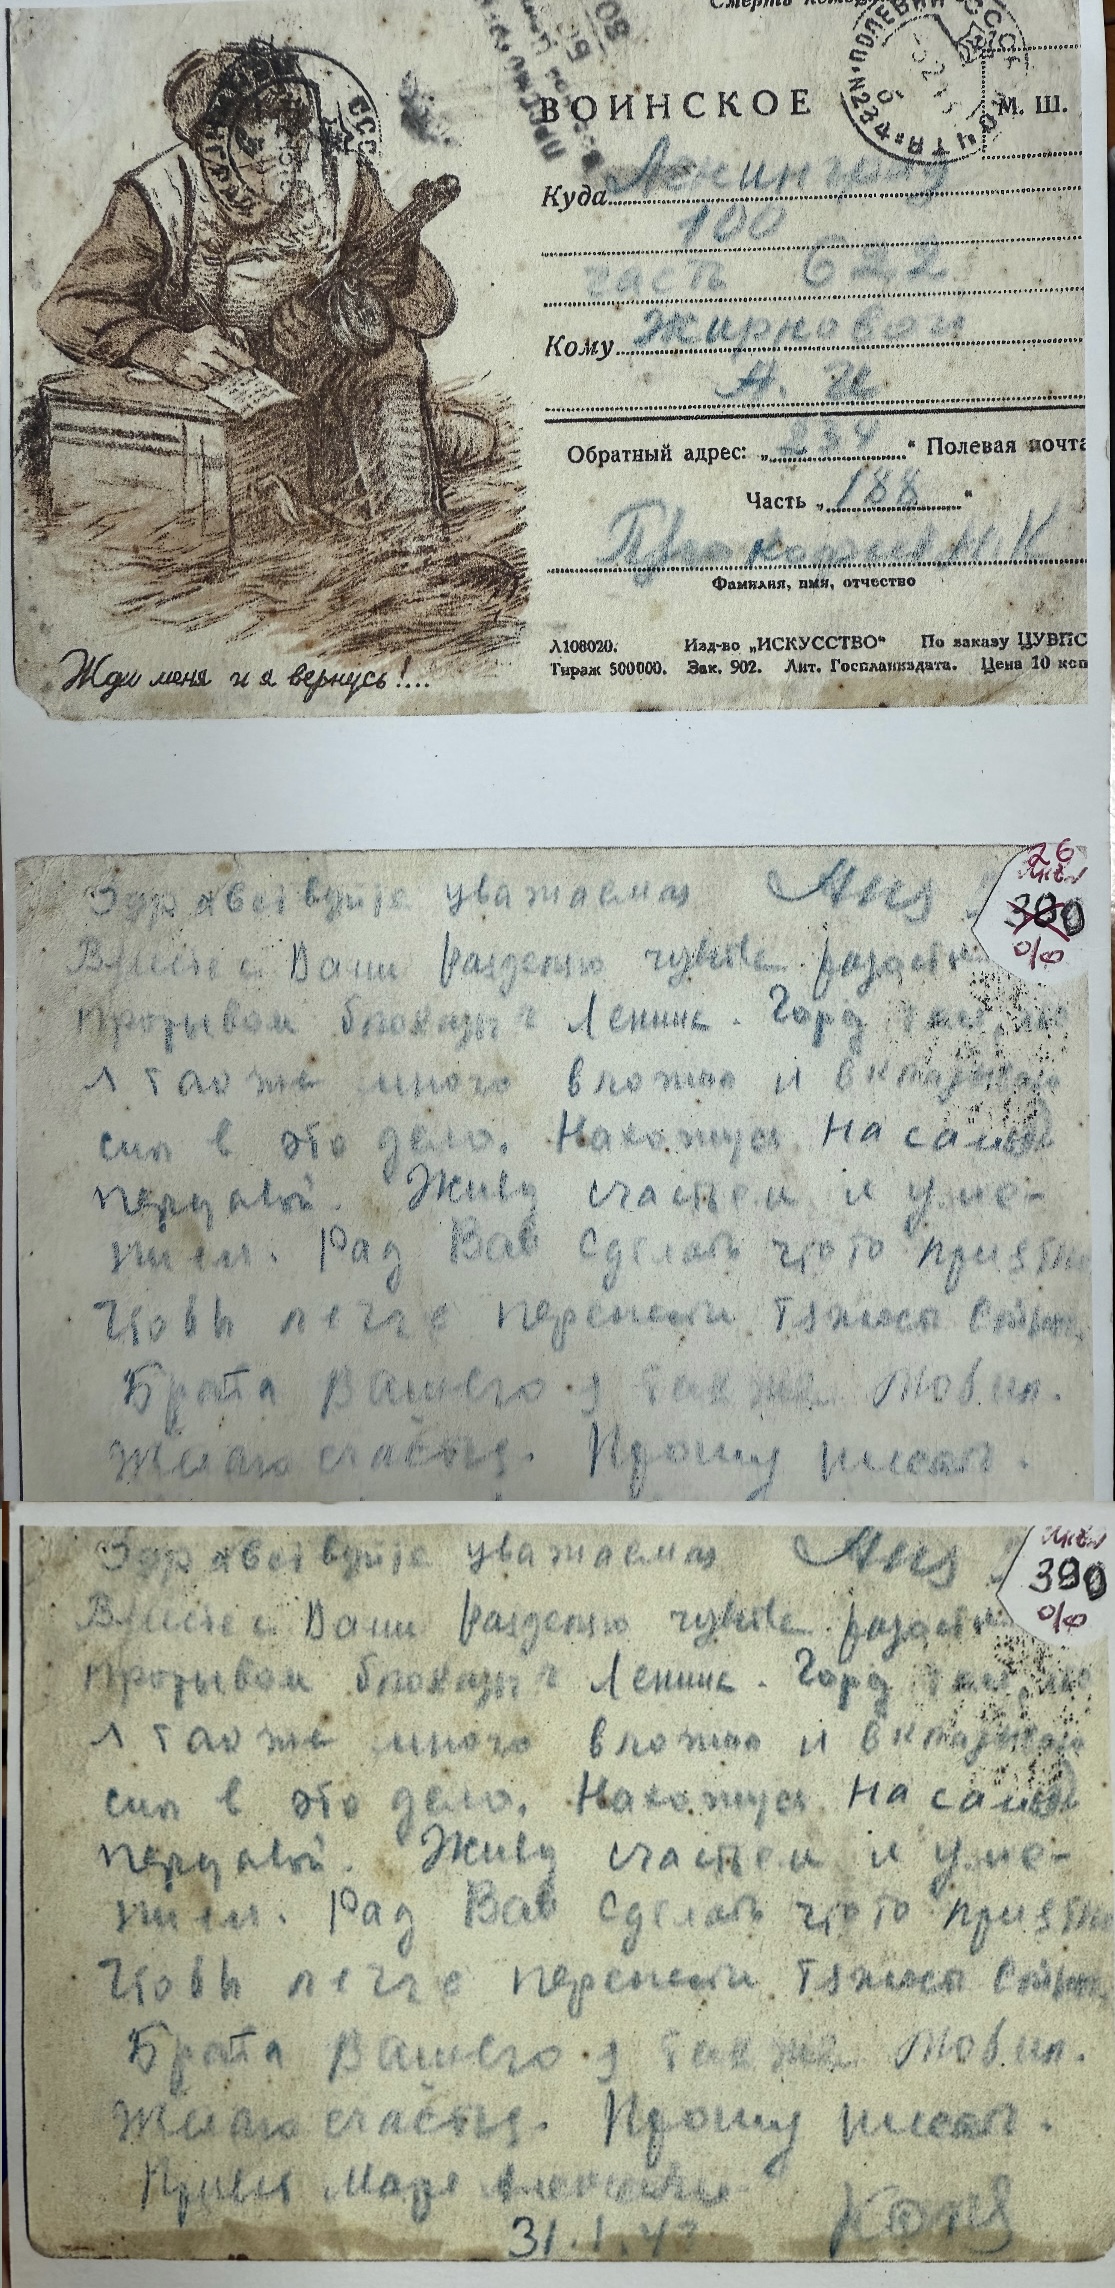 Смерть
ВОИНСКОЕ
М. Ш.
Куда Ленинград
100
часть 622
Кому Жирновой
А. И
Обратный адрес: „234“ Полевая почта
Часть „188“
Прокофьев Н К
Фамилия, имя, отчество
Л108020. Изд-во „ИСКУССТВО“ По заказу ЦУВПС
Тираж 500000. Зак. 902. Лит. Госпланиздата. Цена 10 коп
Жди меня и я вернусь!...
26
390
о/ф
Здравствуйте уважаемая Аня
Вместе с Вами разделяю чувства радости
прорывом блокады г Ленинг. Горд тем, что
я также много вложил и вкладываю
сил в это дело. Нахожусь на самой
передовой. Живу счастьем и уме-
нием. Рад Вам сделать что то приятно
Чтобы легче перенести тяжесть
Брата Вашего я также
Желаю счастья. Прошу писать.
390
о/ф
Здравствуйте уважаемая Аня
Вместе с Вами разделяю чувства радости
прорывом блокады г Ленинг. Горд тем, что
я также много вложил и вкладываю
сил в это дело. Нахожусь на самой
передовой. Живу счастьем и уме-
нием. Рад Вам сделать что то приятно
Чтобы легче перенести тяжесть
Брата Вашего я также
Желаю счастья. Прошу писать.
Привет
31.1.43 Коля